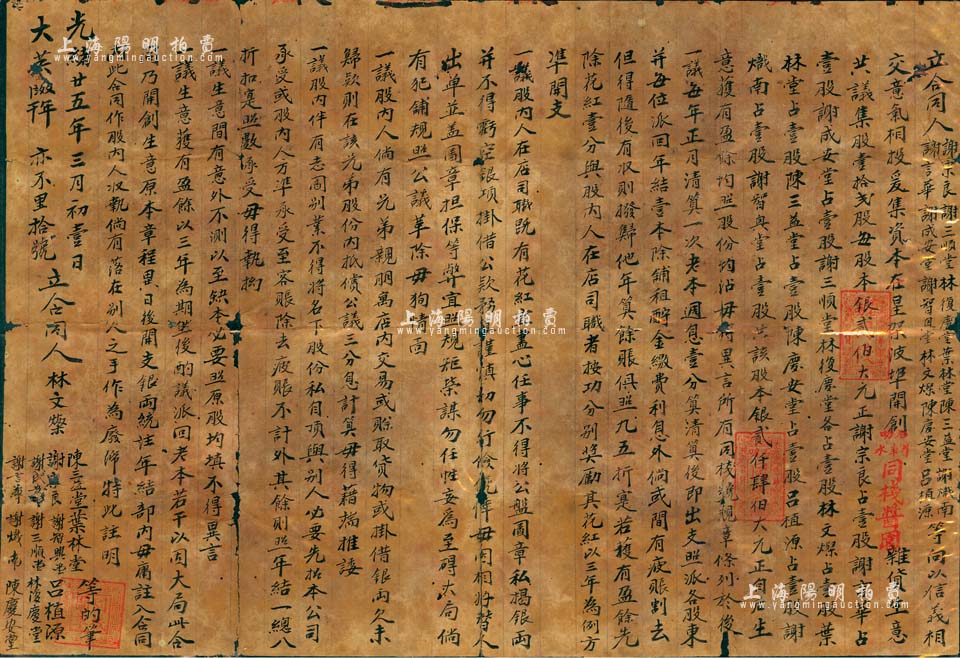 立合同人謝宗良謝三順堂林復慶堂葉林堂陳三益堂謝熾南等同以信義相
謝言華謝成安堂謝智興堂林文燦陳慶安堂呂植源
交業氣相投爰集資本在呈尔波埠開創
同棧醬園
雜貨生意
共議集股壹拾弍股每股本銀弍佰大元正謝宗良占壹股謝言華占
壹股謝成安堂占壹股謝三順堂林復慶堂各占壹股林文燦占壹股葉
林堂占壹股陳三益堂占壹股陳慶安堂占壹股呂植源占壹股謝
熾南占壹股謝智興堂占壹股共該股本銀貳仟肆佰大元正自生
意獲有盈餘均照股份均沾毋得異言所有同棧規草條列於後
一議每年正月清算一次老本週息壹分算清算後即出支照派各股東
并每位派回年結壹本除鋪租酧金繳費利息外倘或間有疲賬剔去
但得隨後有收則撥歸他年算餘賬俱照九五折寔若獲有盈餘先
除花紅壹分與股內人在店司職者按功分別獎勵其花紅以三年為例方
準開支
一議股內人在店司職既有花紅盡心任事不得將公盤圖章私揭銀両
并不得虧空銀項掛借公款預謹慎初勿行毋同相將替人
出單並盖圖章担保等弊宜照規矩勿任性妄為至碍大局倘
有犯鋪規照公議革除毋狥情面
一議股內人倘有兄弟親朋寓店內交易或賒取貨物或掛借銀両久未
歸款則在該兄弟股份內抵償公議三分息計算毋得藉端推諉
一議股內伴有志圖別業不得將名下股份私自頂與別人必要先招本公司
承受或股內人方準承受至客賬除去疲賬不計外其餘則照年結一總八
折扣寔照數承受毋得執拗
一議生意間有意外不測以至缺本必要照原股均填不得異言
一議生意獲有盈餘以三年為期然後酌議派回老本若干以固大局此合
同乃開創生意原本章程異日後開支銀両統註年結部內毋庸註入合同
此合同作股內人收執倘有落在別人之手作為廢帋特此註明
光緒廿五年三月初壹日
大英 亦不里拾號
立合同人林文燦
陳三益堂葉林堂
謝宗良謝智興堂呂植源
謝成安堂謝三順堂林復慶堂
謝言華謝熾南陳慶安堂
等的筆
上海陽明拍賣
www.yangmingauction.com